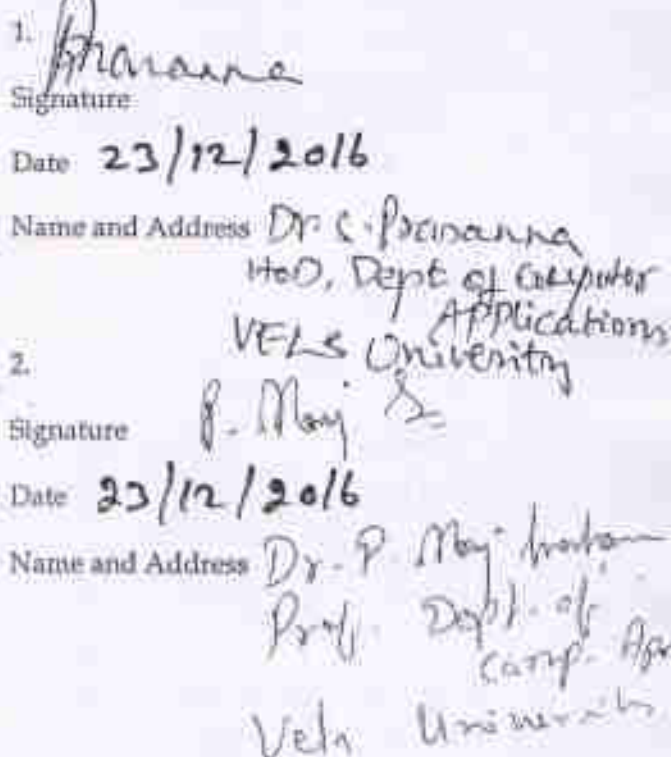 1.
Signature
Date 23/12/2016
Name and Address Dr C. Prasanna
HoD, Dept of Computer
Applications
VELS University
2.
Signature P. Mayi
Date 23/12/2016
Name and Address Dr. P. Mayi
Prof. Dept. of
Comp. App
Vels University